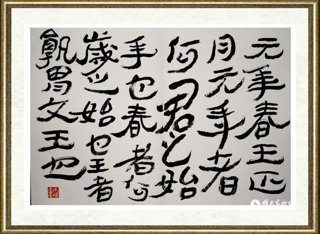 元年春王正
月元年者
何君之始
年也春者何
歲之始也王者
孰胃文王也